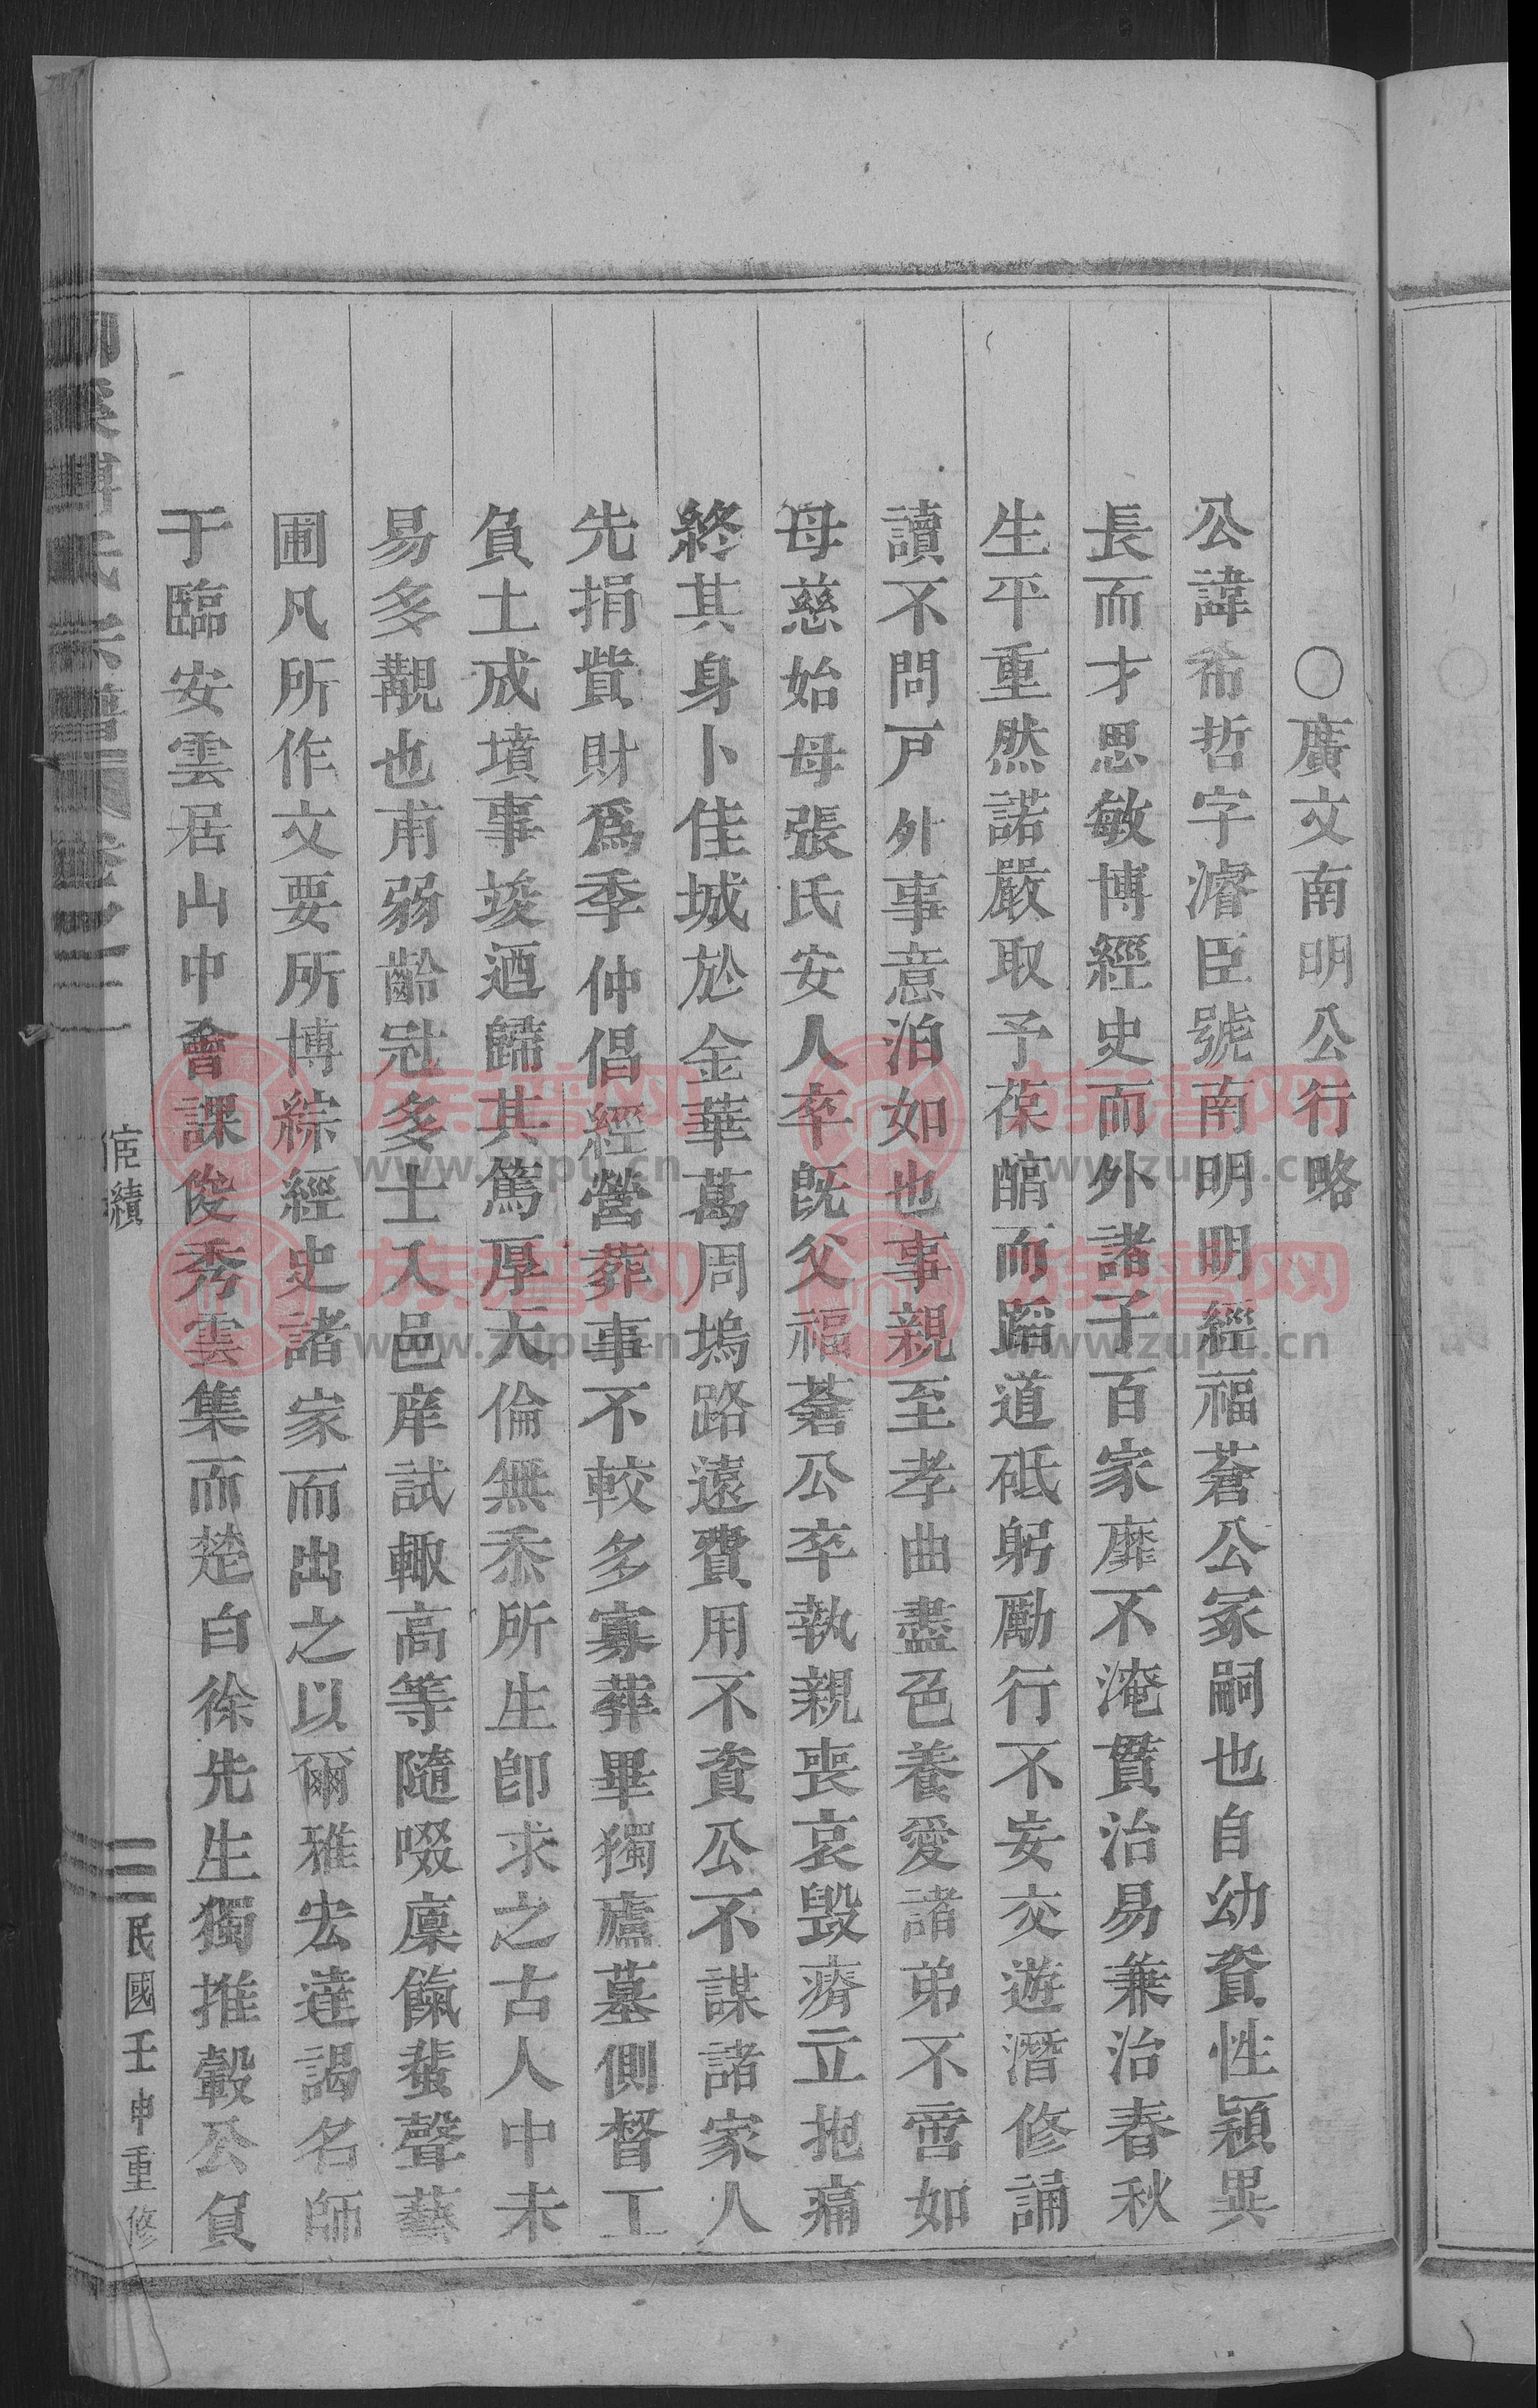 ○廣文南明公行略
公諱希哲字濬臣號南明明經福蒼公冢嗣也自幼資性穎異
長而才思敏博經史而外諸子百家靡不淹貫治易兼治春秋
生平重然諾嚴取予葆醕而蹈道砥躬勵行不妄交遊潛修誦
讀不問戸外事意泊如也事親至孝曲盡色養愛諸弟不啻如
母慈始母張氏安人卒旣父福蒼公卒執親喪哀毀瘠立抱痛
終其身卜佳城於金華萬周塢路遠費用不資公不謀諸家人
先捐貲財爲季仲倡經營葬事不較多寡葬畢獨廬墓側督工
負土成墳事竣迺歸其篤厚天倫無忝所生卽求之古人中未
易多覯也甫弱齡冠多士入邑庠試輙高等隨啜廩餼蜚聲藝
圃凡所作文要所博綜經史諸家而出之以爾雅宏達謁名師
于臨安雲居山中會課俊秀雲集而楚白徐先生獨推轂公負
氏宗譜 卷之二
宦績
民國壬申重修
族普网
www.zupu.cn
族普网
www.zupu.cn
族普网
www.zupu.cn
族普网
www.zupu.cn